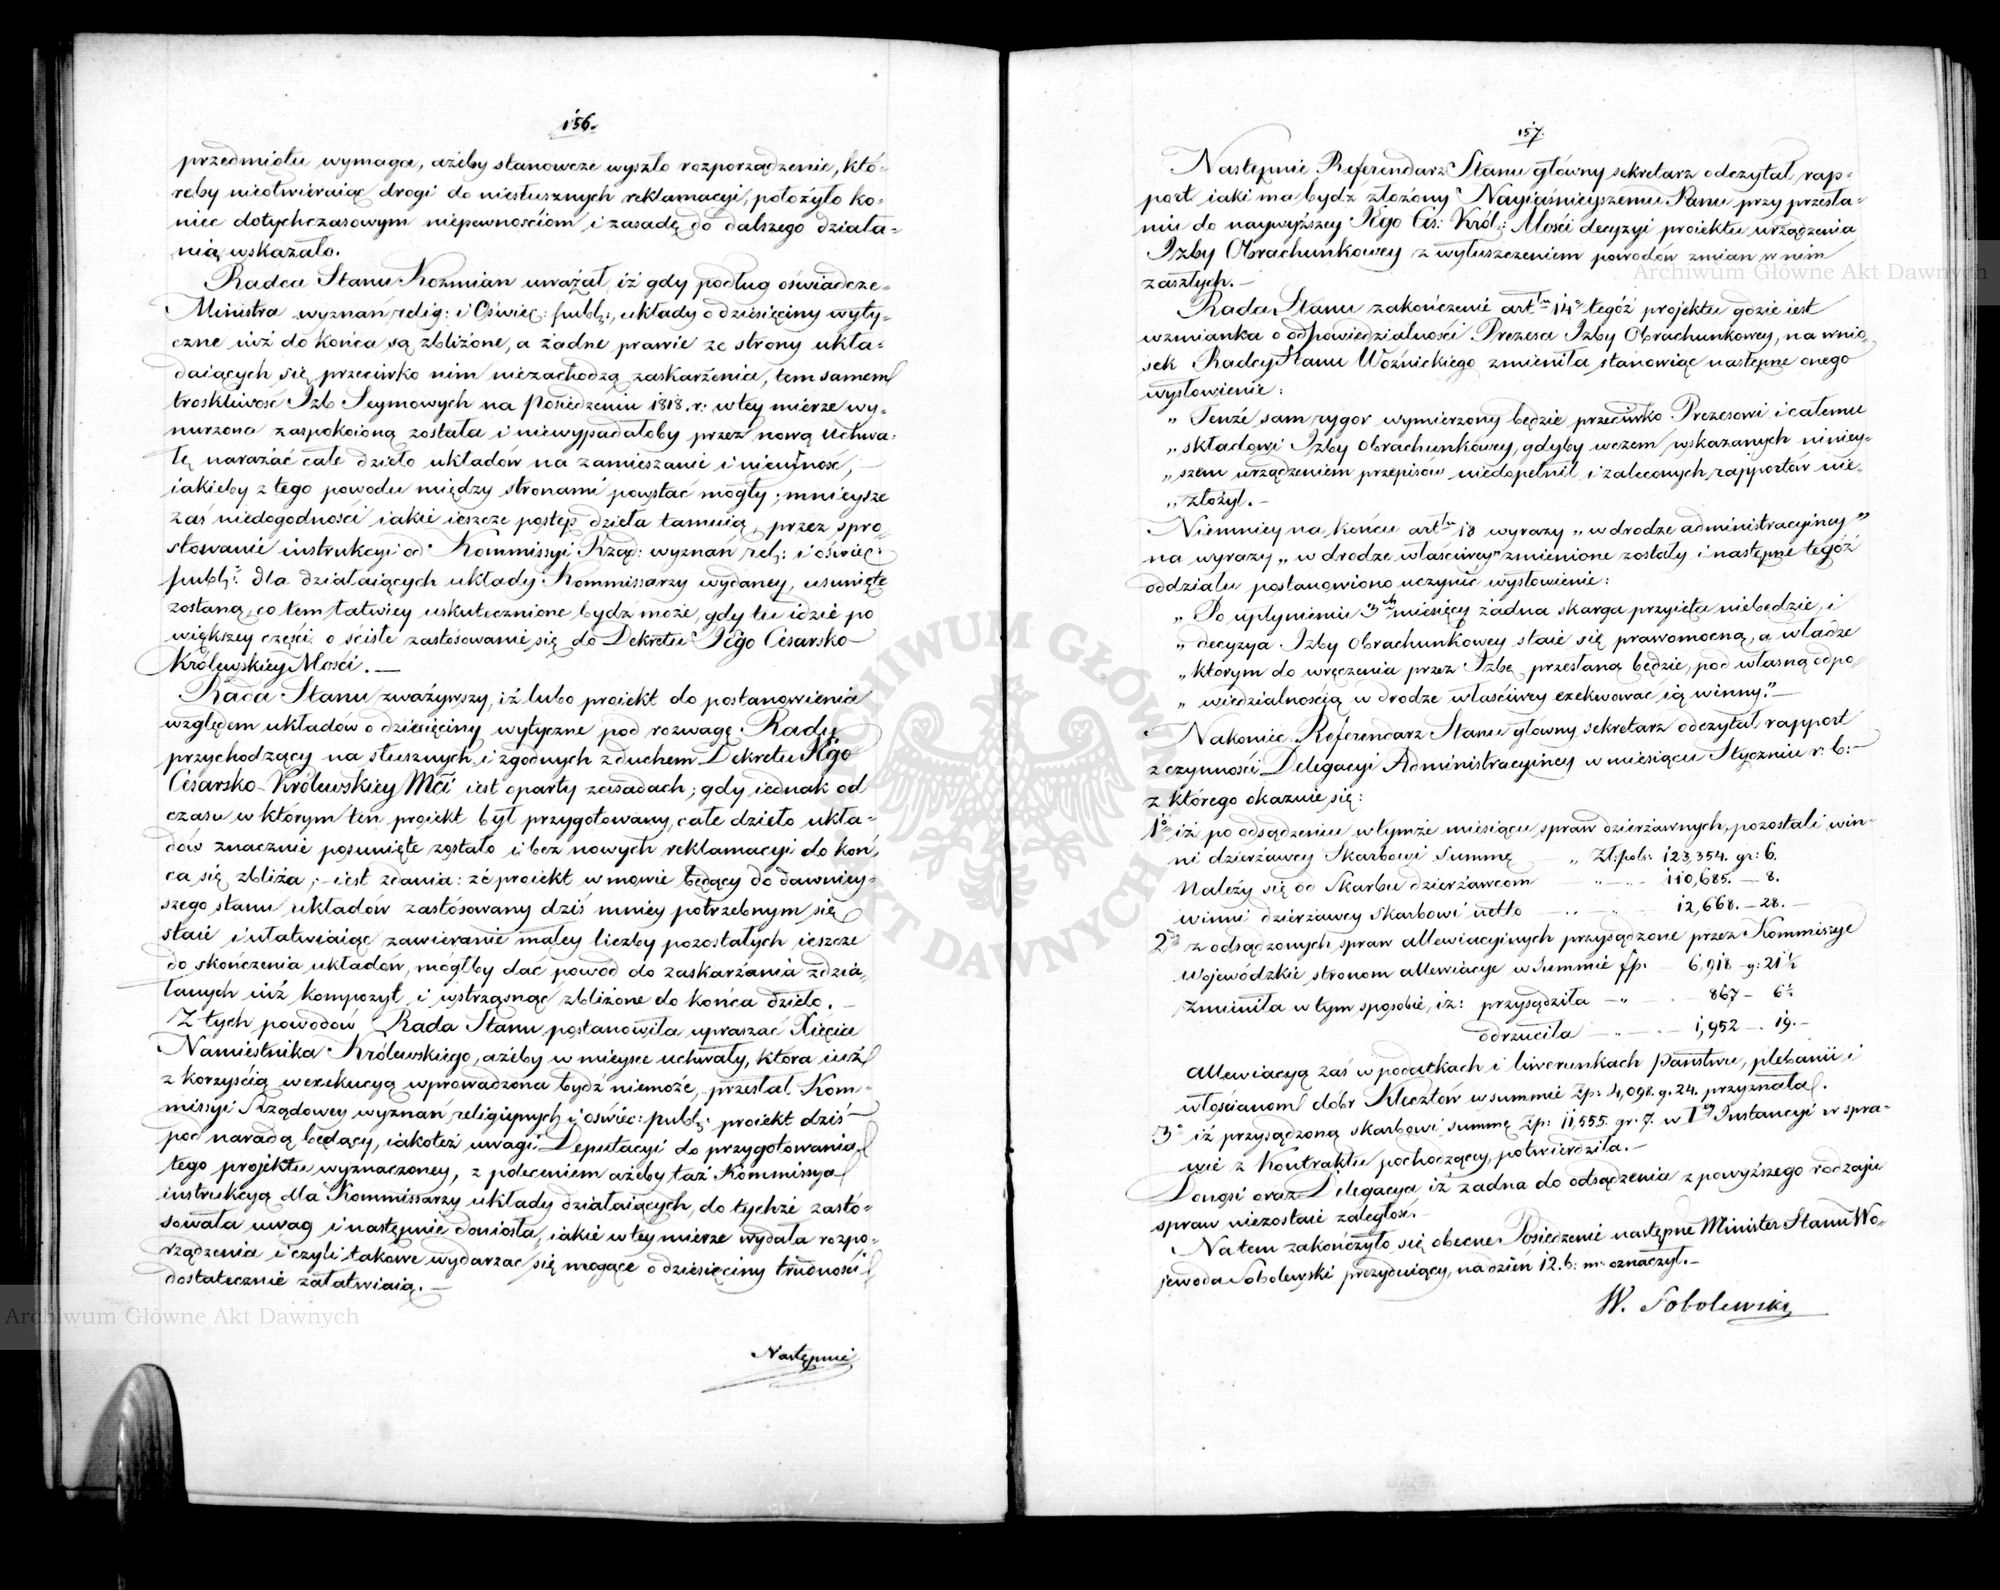 156.
przedmiotu wymaga, ażeby stanowcze wyszło rozporządzenie, któ-
reby nieotwieraiąc drogi do niesłusznych reklamacyi, położyło ko-
niec dotychczasowym niepewnościom i zasadę do dalszego działa-
nia wskazało.
Radca Stanu Koźmian uważał, iż gdy podług oświadcze-
Ministra wyznań relig: i Oświec: publ:, układy o dziesięciny wyty-
czne iuż do końca są zbliżone, a żadne prawie ze strony ukła-
daiących się przeciwko nim niezachodzą zaskarżenia, tem samem
troskliwość Izb Seymowych na Posiedzeniu 1818. r: w tey mierze wy-
nurzona zaspokoioną została i niewypadałoby przez nową Uchwa-
łę narażać całe dzieło układów na zamieszanie i nieufność,
iakieby z tego powodu między stronami powstać mogły; mnieysze
zaś niedogodności iakie ieszcze postęp dzieła tamuią, przez spro-
stowanie instrukcyi od Kommissyi Rząd: wyznań rel: i oświec:
publ: dla działaiących układy Kommissarzy wydaney, usunięte
zostaną, co tem łatwiey uskutecznione bydź może, gdy tu idzie po
większey części o ścisłe zastosowanie się do Dekretu Jego Cesarsko-
Królewskiey Mości. —
Rada Stanu zważywszy, iż lubo proiekt do postanowienia
względem układów o dziesięciny wytyczne pod rozwagę Rady
przychodzący na słusznych i zgodnych z duchem Dekretu Jego
Cesarsko-Królewskiey Mci iest oparty zasadach; gdy iednak od
czasu w którym ten proiekt był przygotowany, całe dzieło ukła-
dów znacznie posunięte zostało i bez nowych reklamacyi do koń-
ca się zbliża; iest zdania: że proiekt w mowie będący do dawniey-
szego stanu układów zastosowany dziś mniey potrzebnym się
staie i ułatwiaiąc zawieranie małey liczby pozostałych ieszcze
do skończenia układów, mógłby dać powód do zaskarżania zdzia-
łanych iuż kompozyt, i wstrząsnąć zbliżone do końca dzieło. —
Z tych powodów Rada Stanu postanowiła upraszać Xięcia
Namiestnika Królewskiego, ażeby w mieysce uchwały, która iuż
z korzyścią w exekucyą wprowadzona bydź niemoże, przesłał Kom-
missyi Rządowey wyznań religiynych i oświec: publ: proiekt dziś
pod naradą będący, iakoteż uwagi Deputacyi do przygotowania
tego projektu wyznaczoney, z poleceniem ażeby taż Kommissya
instrukcyą dla Kommissarzy układy działaiących, do tychże zasto-
sowała uwag i następnie doniosła, iakie w tey mierze wydała rozpo-
rządzenia i czyli takowe wydarzać się mogące o dziesięciny trudności
dostatecznie załatwiaią. —
Następnie
157.
Następnie Referendarz Stanu główny sekretarz odczytał rap-
port iaki ma bydź złożony Nayiaśnieyszemu Panu przy przesła-
niu do naywyższey Jego Ces: Król: Mości decyzyi proiektu urządzenia
Izby Obrachunkowey z wyłuszczeniem powodów zmian w nim
zaszłych. —
Rada Stanu zakończenie art<sup>łu</sup> 14° tegóż projektu gdzie iest
wzmianka o odpowiedzialności Prezesa Izby Obrachunkowey, na wnio-
sek Radcy Stanu Woźnickiego zmieniła, stanowiąc następne onego
wysłowienie:
„ Tenże sam rygor wymierzony będzie przeciwko Prezesowi i całemu
„ składowi Izby Obrachunkowey, gdyby wczem wskazanych niniey-
„ szem urządzeniem przepisów niedopełnił i zaleconych rapportów nie-
„ złożył. —
Niemniey na końcu art<sup>łu</sup> 18 wyrazy „w drodze administracyiney"
na wyrazy „w drodze właściwey" zmienione zostały i następne tegóż
oddziału postanowiono uczynić wysłowienie:
„ Po upłynieniu 3<sup>ch</sup> miesięcy żadna skarga przyięta niebędzie, i
„ decyzya Izby Obrachunkowey staie się prawomocną, a władze
„ którym do wręczenia przez Izbę przesłaną będzie, pod własną odpo-
„ wiedzialnością w drodze właściwey exekwować ią winny." —
Nakoniec Referendarz Stanu główny sekretarz odczytał rapport
z czynności Delegacyi Administracyiney w miesiącu Styczniu r: b: —
z którego okazuie się:
1° iż po odsądzeniu w tymże miesiącu spraw dzierżawnych, pozostali win-
ni dzierżawcy Skarbowi Summę „ Zł: pols: 123,354. gr: 6.
Należy się od Skarbu dzierżawcom — „ — 110,685. — 8.
winni dzierżawcy Skarbowi netto — „ — 12,668. — 28. —
2° z odsądzonych spraw allewiacyinych przysądzone przez Kommissye
Wojewódzkie stronom allewiacye w Summie fp: — 6,918 – g: 21½
Zmieniła w tym sposobie, iż: przysądziła — „ — 867 — 6½
odrzuciła — 1,952 — 19. —
allewiacyą zaś w podatkach i liwerunkach Państwu, plebanii i
włościanom dóbr Kleczłów w summie Zp: 4,098. g. 24. przyznała.
3° iż przysądzoną skarbowi summę Zp: 11,555. gr. 7. w I<sup>ey</sup> Instancyi w spra-
wie z Kontraktu pochodzącey, potwierdziła. —
Donosi oraz Delegacya iż żadna do odsądzenia z powyższego rodzaju
spraw niezostaie zaległość. —
Na tem zakończyło się obecne Posiedzenie następne Minister Stanu Wo-
jewoda Sobolewski prezyduiący, na dzień 12. b: m: oznaczył. —
W. Sobolewski